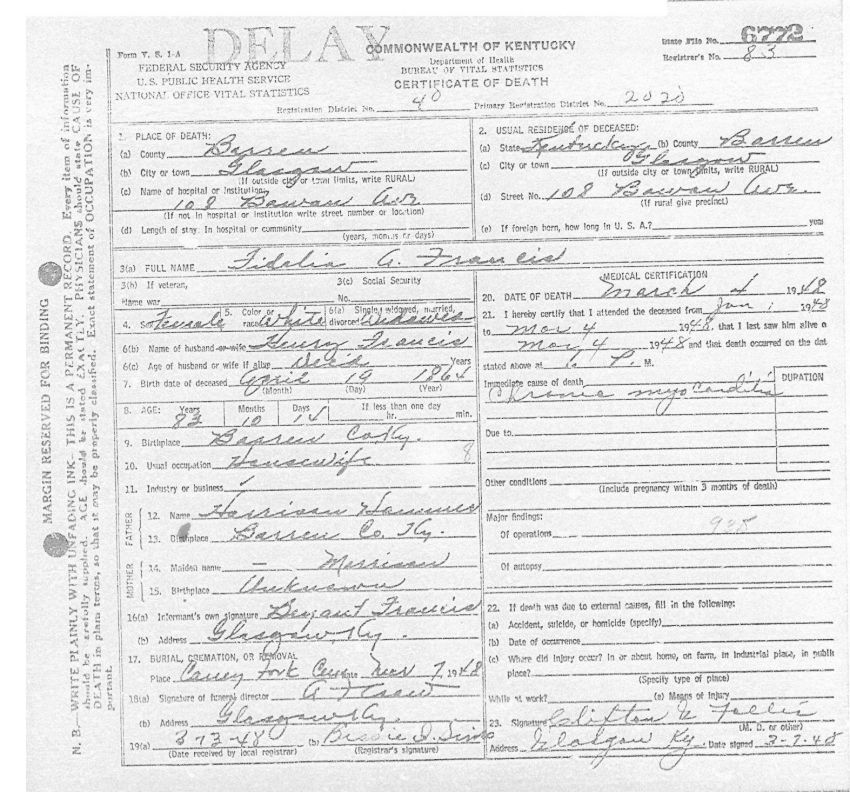 DELAY
COMMONWEALTH OF KENTUCKY
State File No. 6772
Form V. S. 1-A
Department of Health
Registrar's No. 83
FEDERAL SECURITY AGENCY
BUREAU OF VITAL STATISTICS
U.S. PUBLIC HEALTH SERVICE
CERTIFICATE OF DEATH
NATIONAL OFFICE VITAL STATISTICS
Registration District No. 40 Primary Registration District No. 2020
1. PLACE OF DEATH:
(a) County Barren
(b) City or town Glasgow
(If outside city or town limits, write RURAL)
(c) Name of hospital or Institution:
108 Bowan Ave
(If not in hospital or institution write street number or location)
(d) Length of stay: In hospital or community
(years, months or days)
2. USUAL RESIDENCE OF DECEASED:
(a) State Kentucky (b) County Barren
(c) City or town Glasgow
(If outside city or town limits, write RURAL)
(d) Street No. 108 Bowan Ave.
(If rural give precinct)
(e) If foreign born, how long in U. S. A.? years
3(a) FULL NAME Fidelia A. Francis
3(b) If veteran,
Name war
3(c) Social Security
No.
4. Sex Female 5. Color or race White 6(a) Single, widowed, married, divorced Widowed
6(b) Name of husband or wife Henry Francis
6(c) Age of husband or wife if alive Dec'd Years
7. Birth date of deceased April 19 1864
(Month) (Day) (Year)
8. AGE: Years 83 Months 10 Days 14 If less than one day hr. min.
9. Birthplace Barren Co. Ky.
10. Usual occupation Housewife 8
11. Industry or business
FATHER
12. Name Harrison
13. Birthplace Barren Co. Ky.
MOTHER
14. Maiden name — Morrison
15. Birthplace Unknown
16(a) Informant's own signature Bryant Francis
(b) Address Glasgow, Ky.
17. BURIAL, CREMATION, OR REMOVAL
Place Caney Fork Cem Date Mar 7, 1948
18(a) Signature of funeral director A F Crow
(b) Address Glasgow Ky.
19(a) 3-13-48 (b) Bessie D. Sims
(Date received by local registrar) (Registrar's signature)
MEDICAL CERTIFICATION
20. DATE OF DEATH March 4 1948
21. I hereby certify that I attended the deceased from Jan 1 1948
to Mar 4 1948, that I last saw him alive o
Mar 4 1948 and that death occurred on the dat
stated above at 1 P. M.
Immediate cause of death DURATION
Chronic myocarditis
Due to
Other conditions
(Include pregnancy within 3 months of death)
Major findings:
Of operations
Of autopsy
22. If death was due to external causes, fill in the following:
(a) Accident, suicide, or homicide (specify)
(b) Date of occurrence
(c) Where did injury occur? In or about home, on farm, in industrial place, in public
place?
(Specify type of place)
While at work? (e) Means of Injury
23. Signature Clifton
(M. D. or other)
Address Glasgow Ky. Date signed 3-7-48
MARGIN RESERVED FOR BINDING
N. B.—WRITE PLAINLY WITH UNFADING INK—THIS IS A PERMANENT RECORD. Every item of information
should be carefully supplied. AGE should be stated EXACTLY. PHYSICIANS should state CAUSE OF
DEATH in plain terms, so that it may be properly classified. Exact statement of OCCUPATION is very im-
portant.